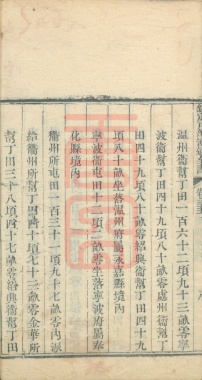 溫州衞幫丁田一百六十二頃九十三畝零寧
波衞幫丁田四十九頃八十畝零處州衞幫丁
田四十九頃八十畝零紹興衞幫丁田四十九
頃八十畝坐落溫州府屬永嘉縣境內
寧波衞屯田十二頃十畝零坐落寧波府屬奉
化縣境內
衢州所屯田一百三十一頃九十七畝零內派
給衢州所幫丁田四十頃七十三畝零金華所
幫丁田三十八頃四十七畝零紹興衞幫丁田